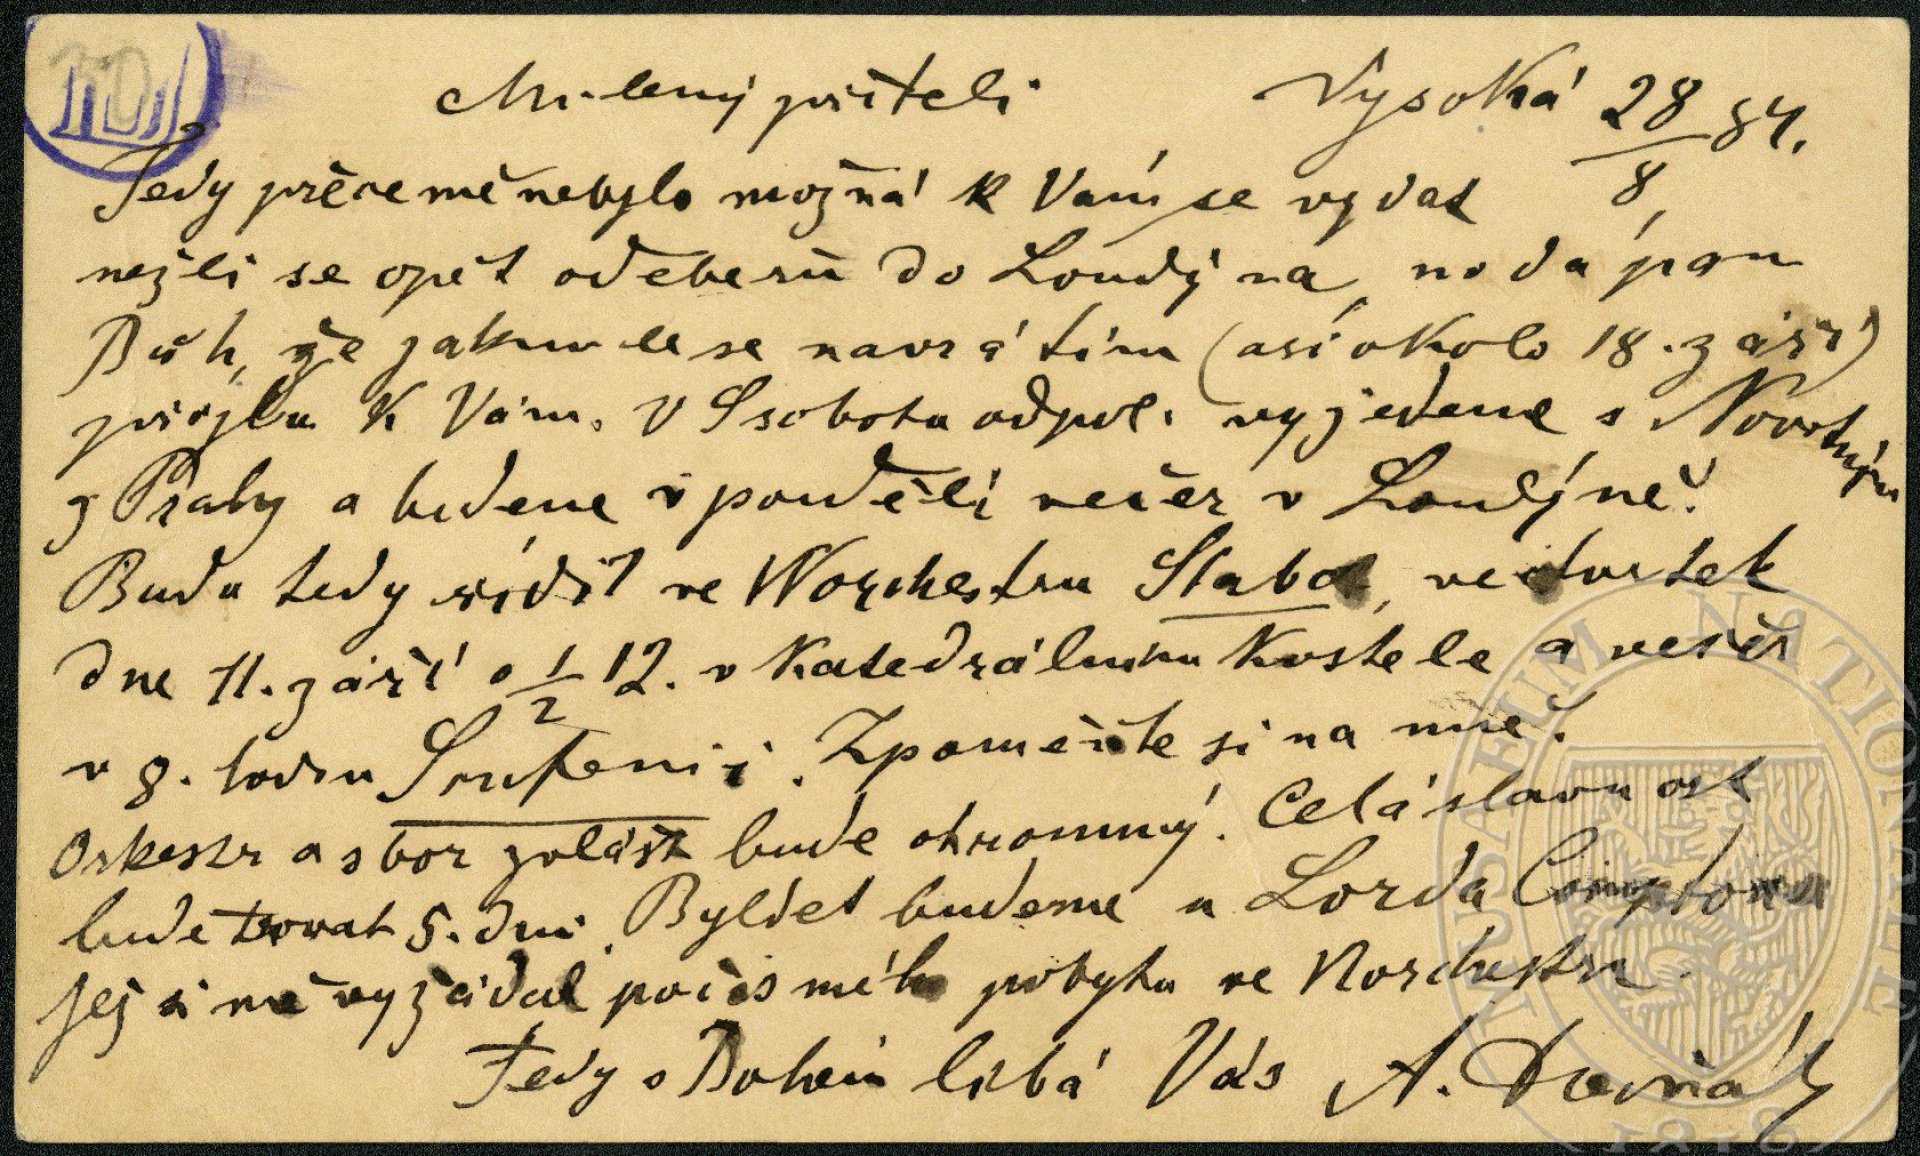 Milený příteli Vysoká 28/8 84.
Tedy přece mě nebylo možná k Vám se vydat
nežli se opět odeberu do Londýna, no dá pan
Bůh, že jakmile se navrátím (asi okolo 18. září)
přijedu k Vám. V Ssobotu odpol. vyjedeme s Novotným
z Prahy a budeme v pondělí večer v Londýně.
Budu tedy řídit ve Worchestru Stabat, ve čtvrtek
dne 11. září o 1/2 12. v Katedrálním Kostele a večer
v 8. hodin Sinfonii. Zpomeňte si na mně.
Orkestr a sbor zvlášť bude ohromný. Celá slavnost
bude trvat 5. dní. Bydlet budeme u Lorda Comptona
jež si mě vyžádal po čas mého pobytu ve Worchestru.
Tedy s Bohem líbá Vás A. Dvořák
MUSAEUM NATIONALE
1818